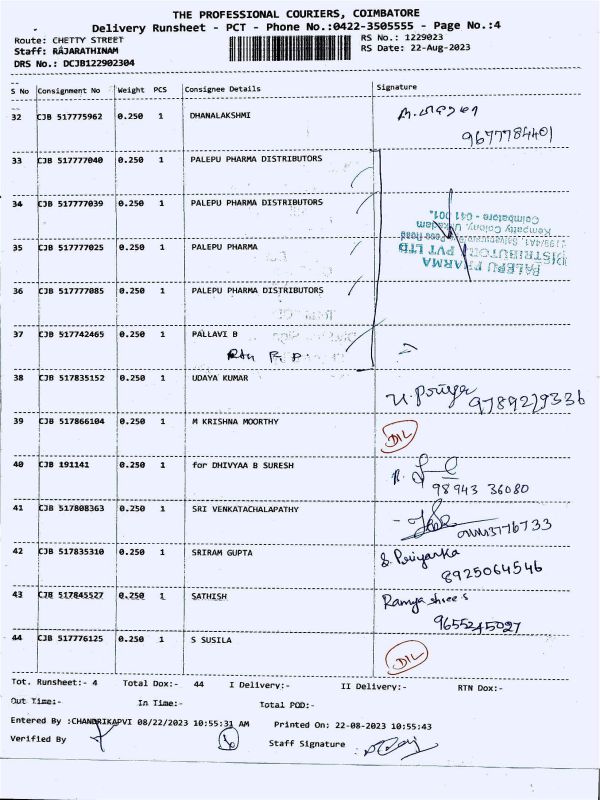 THE PROFESSIONAL COURIERS, COIMBATORE
Delivery Runsheet - PCT - Phone No.:0422-3505555 - Page No.:4
Route: CHETTY STREET
RS No.: 1229023
Staff: RAJARATHINAM
RS Date: 22-Aug-2023
DRS No.: DCJB122902304
S No Consignment No Weight PCS Consignee Details Signature
32 CJB 517775962 0.250 1 DHANALAKSHMI
9677784401
33 CJB 517777040 0.250 1 PALEPU PHARMA DISTRIBUTORS
34 CJB 517777039 0.250 1 PALEPU PHARMA DISTRIBUTORS
35 CJB 517777025 0.250 1 PALEPU PHARMA
PALEPU PHARMA
DISTRIBUTORS PVT LTD
Kempatty Colony, Ukkadam
Coimbatore - 641 001.
36 CJB 517777085 0.250 1 PALEPU PHARMA DISTRIBUTORS
37 CJB 517742465 0.250 1 PALLAVI B
38 CJB 517835152 0.250 1 UDAYA KUMAR
U. Poriya 9789219336
39 CJB 517866104 0.250 1 M KRISHNA MOORTHY
D/L
40 CJB 191141 0.250 1 for DHIVYAA B SURESH
98943 36080
41 CJB 517808363 0.250 1 SRI VENKATACHALAPATHY
42 CJB 517835310 0.250 1 SRIRAM GUPTA
S. Priyanka
8925064546
43 CJB 517845527 0.250 1 SATHISH
Ramya shree s
9655245027
44 CJB 517776125 0.250 1 S SUSILA
D/L
Tot. Runsheet:- 4 Total Dox:- 44 I Delivery:- II Delivery:- RTN Dox:-
Out Time:- In Time:- Total POD:-
Entered By :CHANDRIKAPVI 08/22/2023 10:55:31 AM Printed On: 22-08-2023 10:55:43
Verified By Staff Signature :